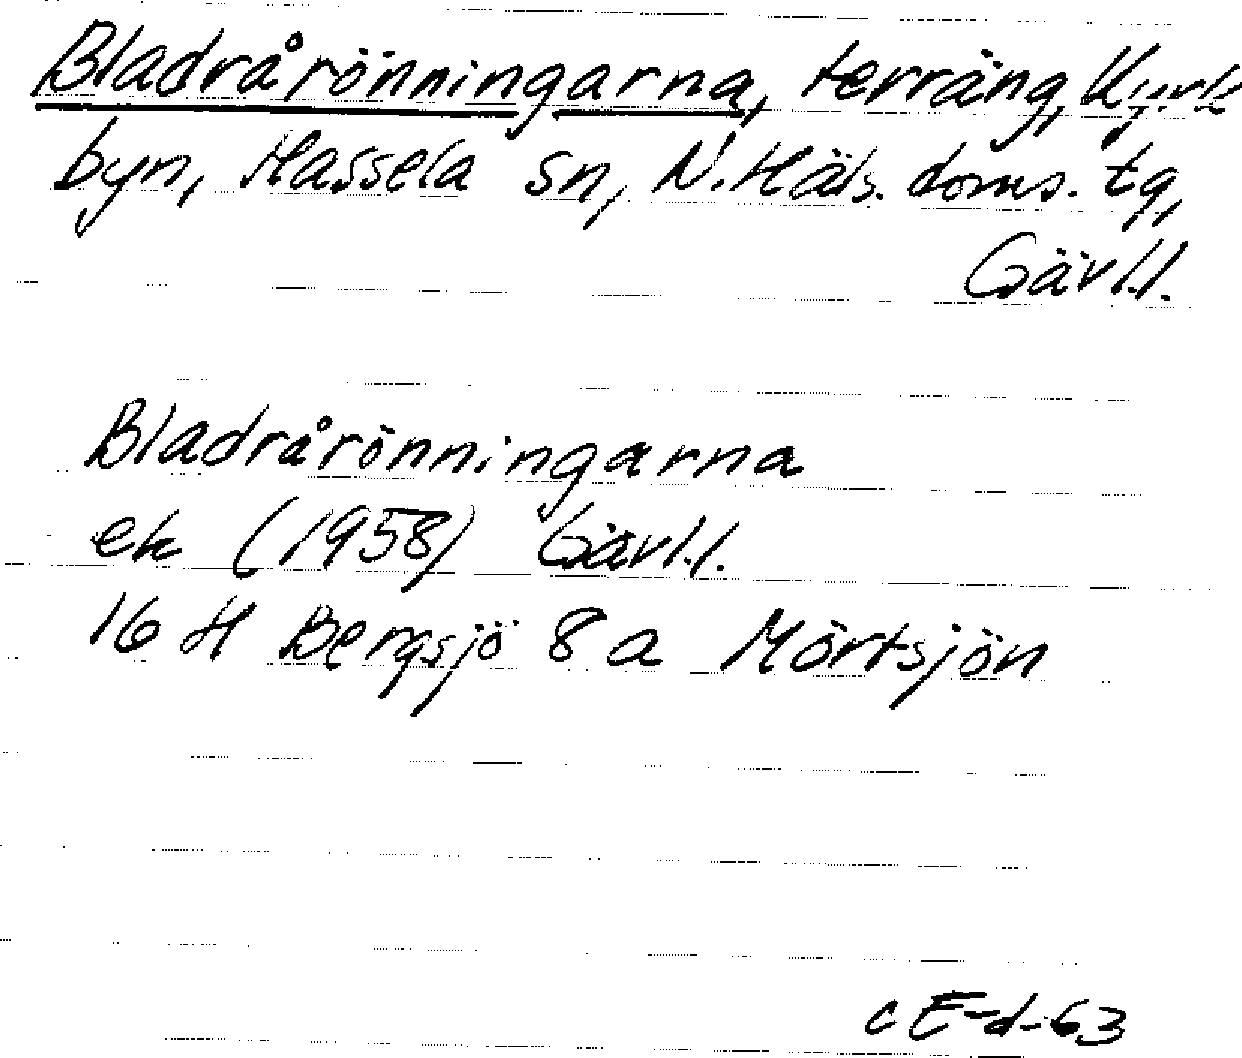 Bladrårönningarna, terräng, Kyrk
byn, Hassela sn, N. Häls. doms. tg,
Gävl.l.
Bladrårönningarna
ek (1958) Gävl.l.
16 H Bergsjö 8 a Mörtsjön
c E-d-63